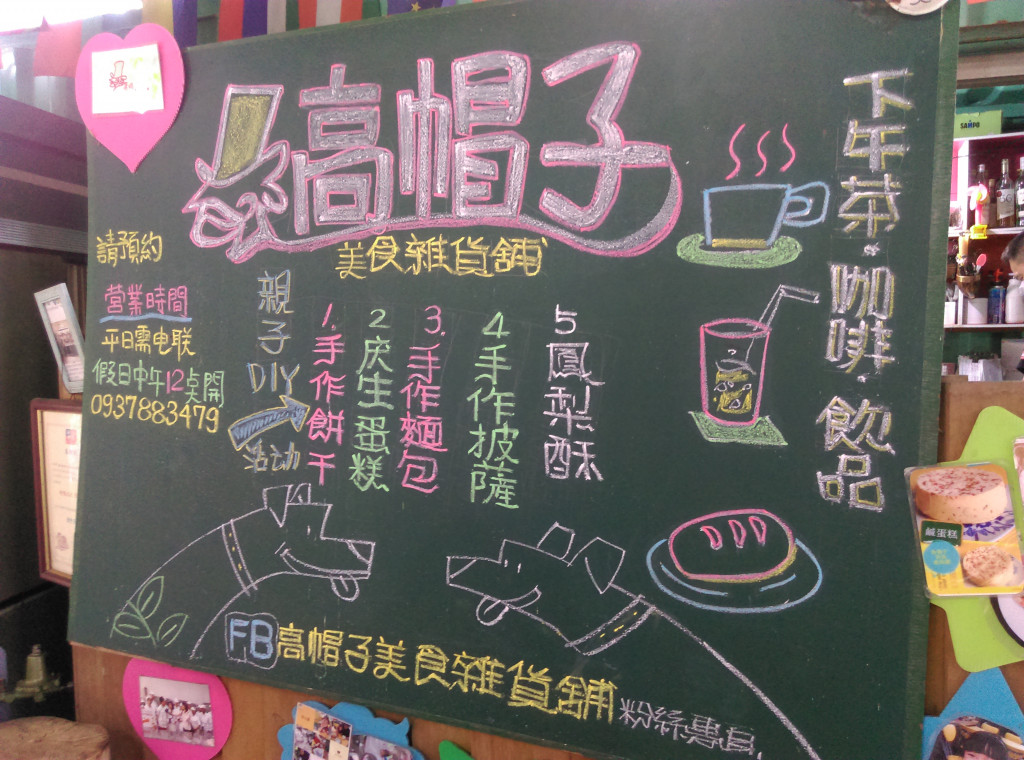 高帽子
美食雜貨舖
請預約
營業時間
平日需电联
假日中午12点開
0937883479
親子DIY
活动
1.手作餅干
2庆生蛋糕
3.手作麵包
4手作披薩
5鳳梨酥
下午茶·咖啡·飲品
FB高帽子美食雜貨舖粉絲專頁
鹹蛋糕
SAMPO